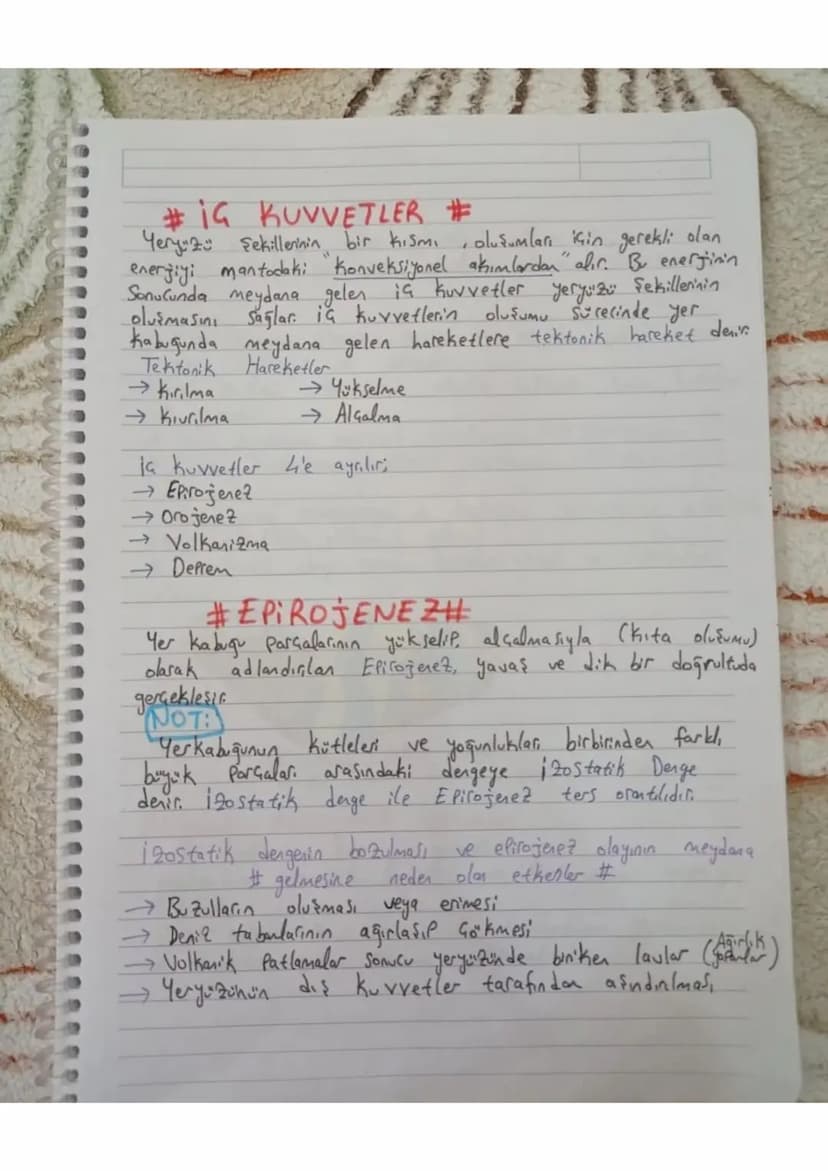 # İÇ KUVVETLER #
Yeryüzü şekillerinin bir kısmı, oluşumları için gerekli olan
enerjiyi mantodaki "konveksiyonel akımlardan" alır. Bu enerjinin
Sonucunda meydana gelen iç kuvvetler yeryüzü şekillerinin
oluşmasını sağlar. iç kuvvetlerin oluşumu sürecinde yer
kabuğunda meydana gelen hareketlere tektonik hareket denir.
Tektonik Hareketler
→ Kırılma → Yükselme
→ Kıvrılma → Alçalma
İç kuvvetler 4'e ayrılır;
→ Epirojenez
→ Orojenez
→ Volkanizma
→ Deprem
# EPİROJENEZ #
Yer kabuğu parçalarının yükselip, alçalmasıyla (kıta oluşumu)
olarak adlandırılan Epirojenez, yavaş ve dik bir doğrultuda
gerçekleşir.
NOT:
Yerkabuğunun kütleleri ve yoğunlukları birbirinden farklı,
büyük parçaları arasındaki dengeye İzostatik Denge
denir. İzostatik denge ile Epirojenez ters orantılıdır.
İzostatik dengenin bozulması ve epirojenez olayının meydana
# gelmesine neden olan etkenler #
→ Buzulların oluşması veya erimesi
→ Deniz tabanlarının ağırlaşıp çökmesi
→ Volkanik Patlamalar sonucu yeryüzünde biriken lavlar (Ağırlık yaparlar)
→ Yeryüzünün dış kuvvetler tarafından aşındırılması,